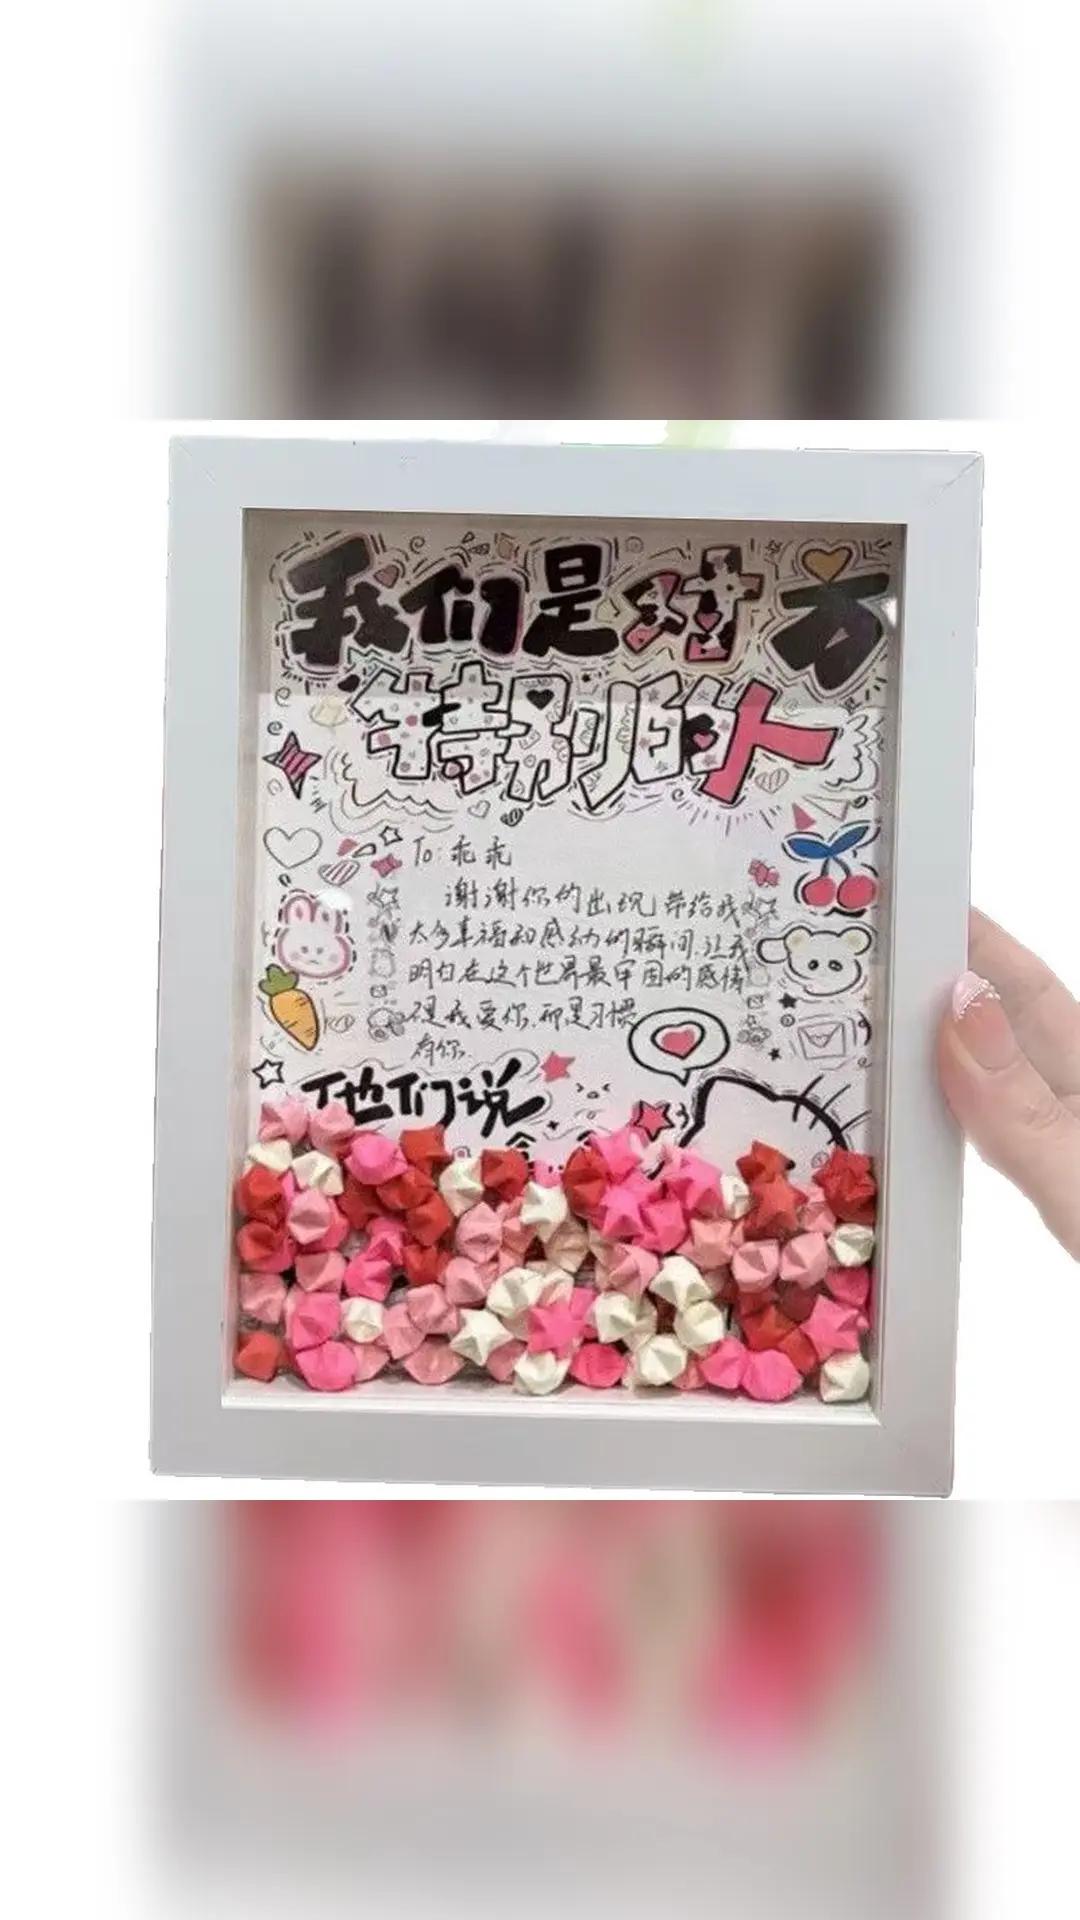 我们是对方
特别的人
To:乖乖
谢谢你的出现,带给我
太多幸福和感动的瞬间.让我
明白在这个世界最牢固的感情
不是我爱你.而是习惯
有你.
他们说